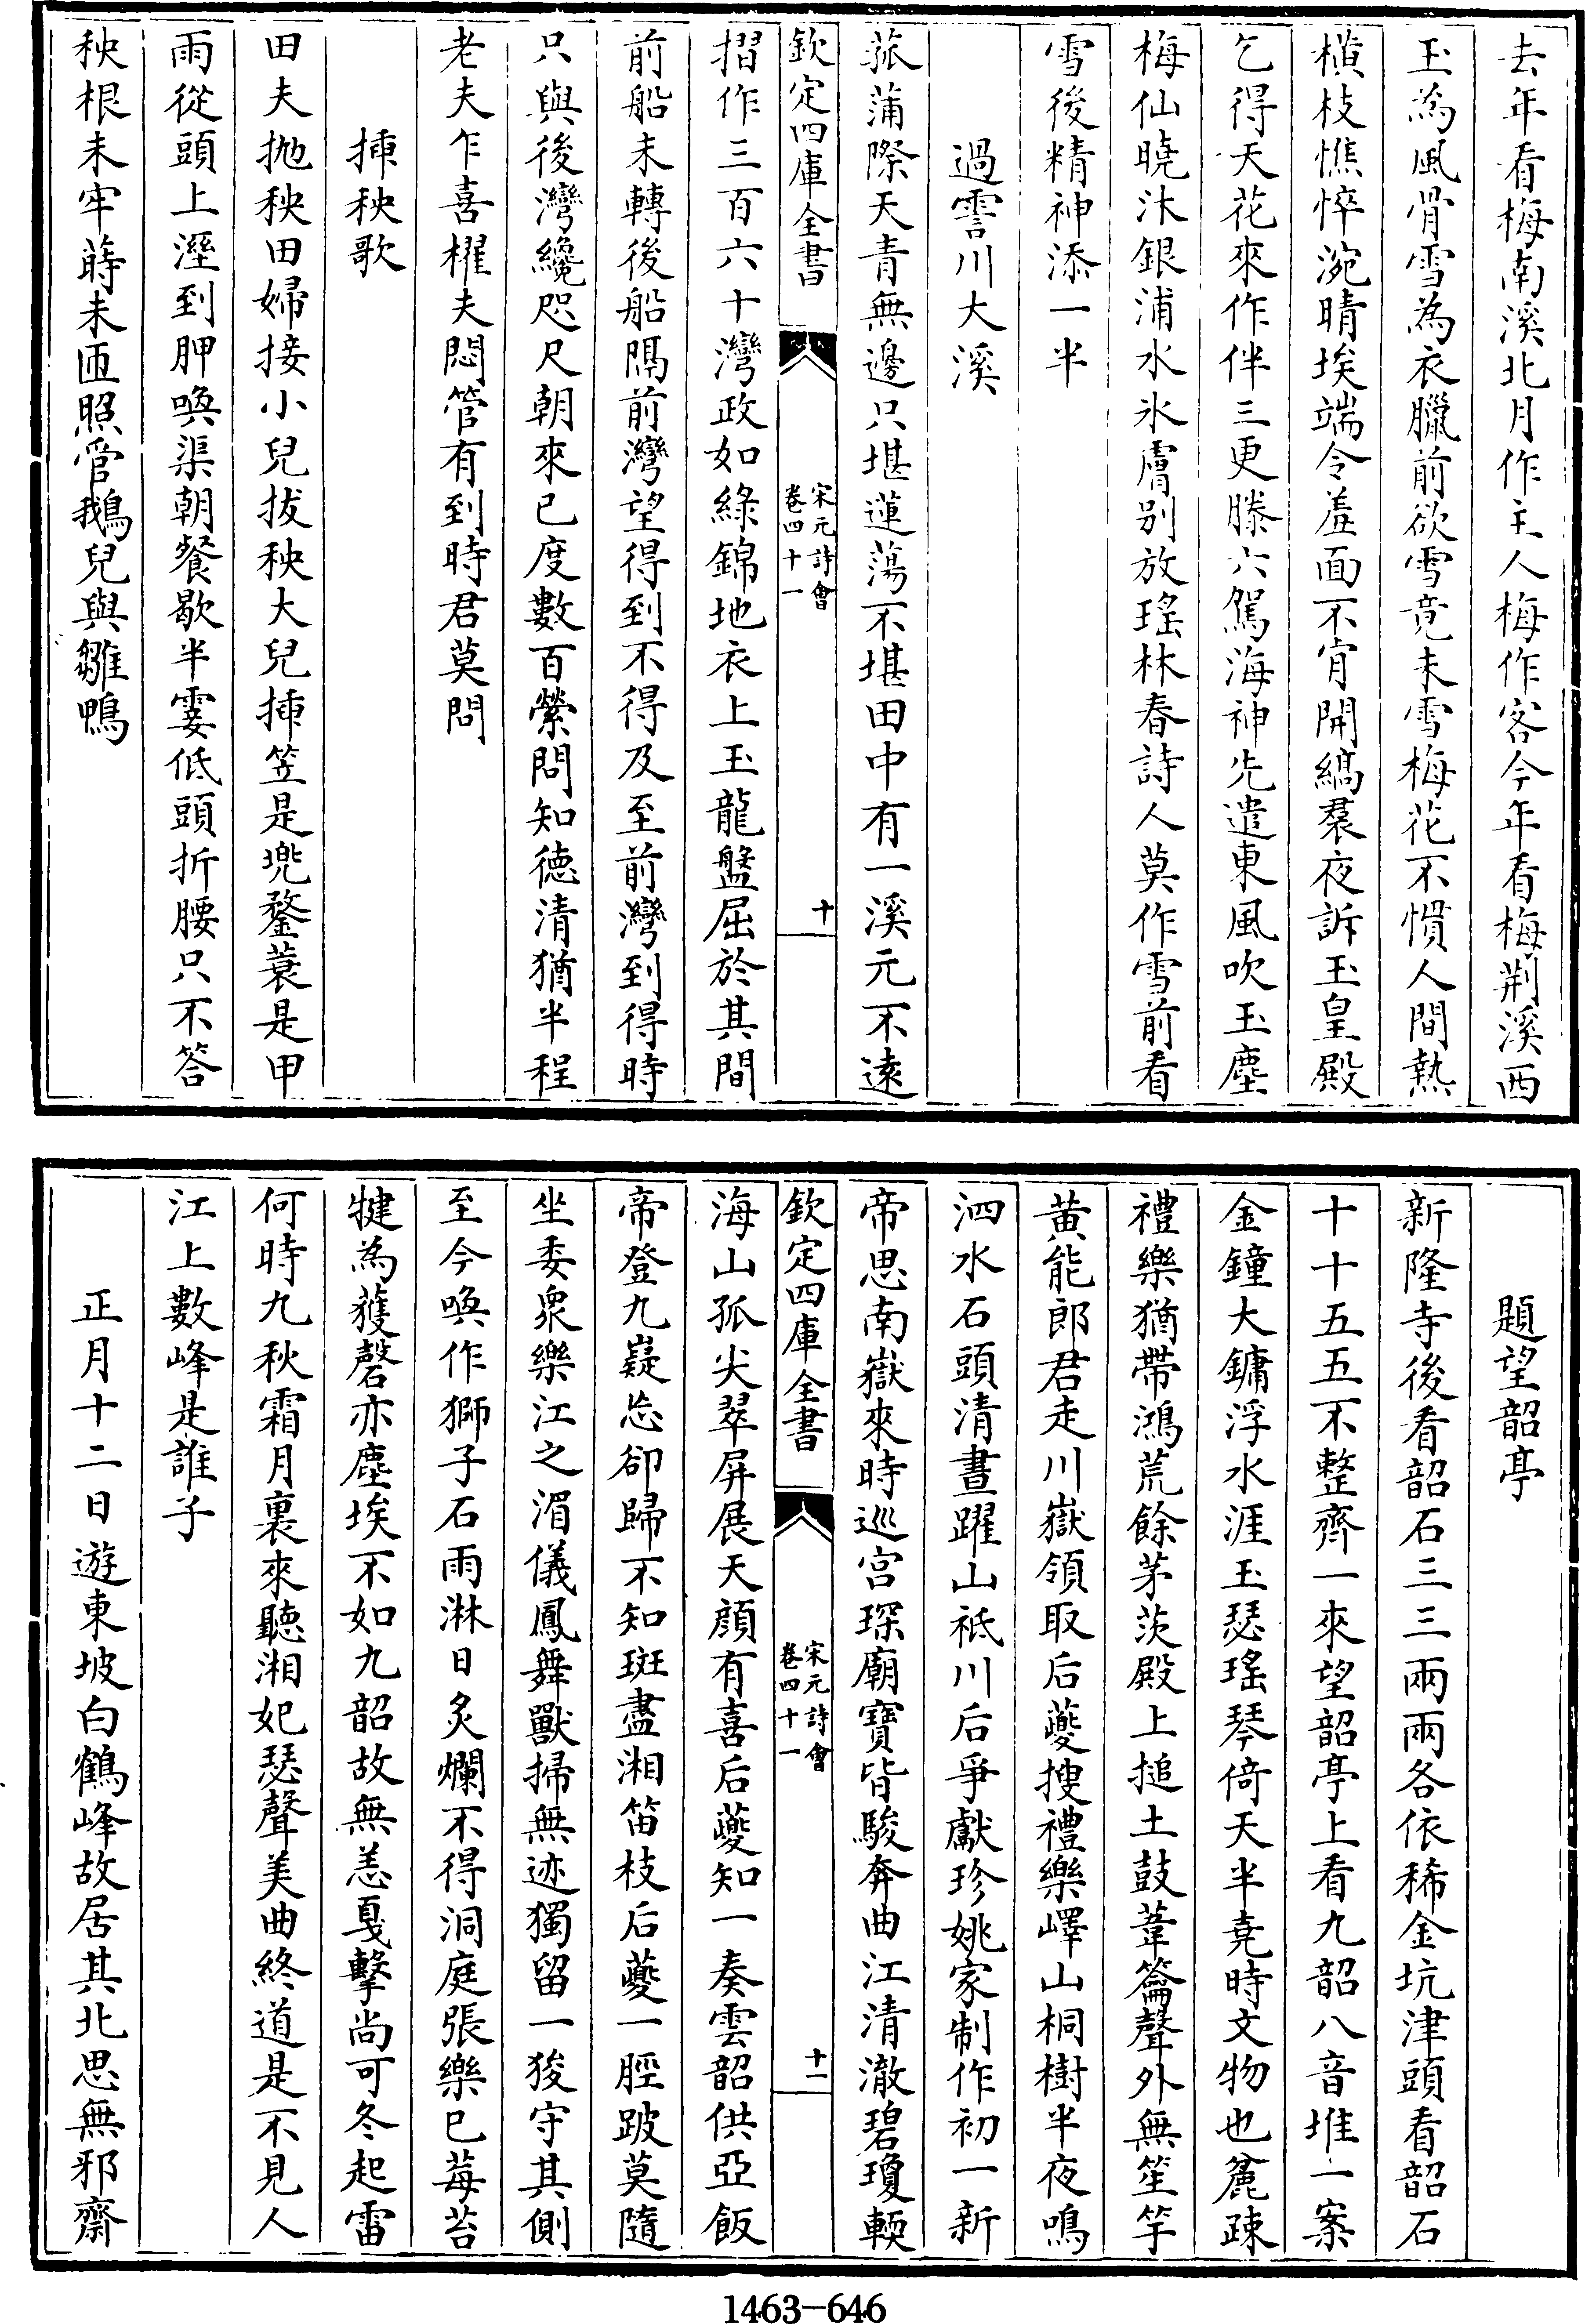 去年看梅南溪北月作主人梅作客今年看梅荆溪西
玉為風骨雪為衣臘前欲雪竟未雪梅花不慣人間熱
橫枝憔悴涴晴埃端令羞面不肯開縞裠夜訴玉皇殿
乞得天花來作伴三更滕六駕海神先遣東風吹玉塵
梅仙曉沐銀浦水氷膚别放瑤林春詩人莫作雪前看
雪後精神添一半
過霅川大溪
菰蒲際天青無邊只堪蓮蕩不堪田中有一溪元不遠
欽定四庫全書
宋元詩會
卷四十一
十
摺作三百六十灣政如綠錦地衣上玉龍盤屈於其間
前船未轉後船隔前灣望得到不得及至前灣到得時
只與後灣纔咫尺朝來已度數百縈問知德清猶半程
老夫乍喜櫂夫悶管有到時君莫問
揷秧歌
田夫抛秧田婦接小兒拔秧大兒揷笠是兠鍪蓑是甲
雨從頭上溼到胛喚渠朝餐歇半霎低頭折腰只不答
秧根未牢蒔未匝照管鵝兒與雛鴨
題望韶亭
新隆寺後看韶石三三兩兩各依稀金坑津頭看韶石
十十五五不整齊一來望韶亭上看九韶八音堆一案
金鐘大鏞浮水涯玉瑟瑤琴倚天半堯時文物也麄疎
禮樂猶帶鴻荒餘茅茨殿上搥土鼓葦籥聲外無笙竽
黄能郎君走川嶽領取后夔搜禮樂嶧山桐樹半夜鳴
泗水石頭清晝躍山祗川后爭獻珍姚家制作初一新
帝思南嶽來時巡宫琛廟寶皆駿奔曲江清澈碧瓊輭
欽定四庫全書
宋元詩會
卷四十一
十一
海山孤尖翠屏展天顔有喜后夔知一奏雲韶供亞飯
帝登九嶷忘卻歸不知斑盡湘笛枝后夔一脛跛莫隨
坐委衆樂江之湄儀鳳舞獸掃無迹獨留一狻守其側
至今喚作獅子石雨淋日炙爛不得洞庭張樂已莓苔
犍為獲磬亦塵埃不如九韶故無恙戛擊尚可冬起雷
何時九秋霜月裏來聽湘妃瑟聲美曲終道是不見人
江上數峰是誰子
正月十二日遊東坡白鶴峰故居其北思無邪齋
1463-646